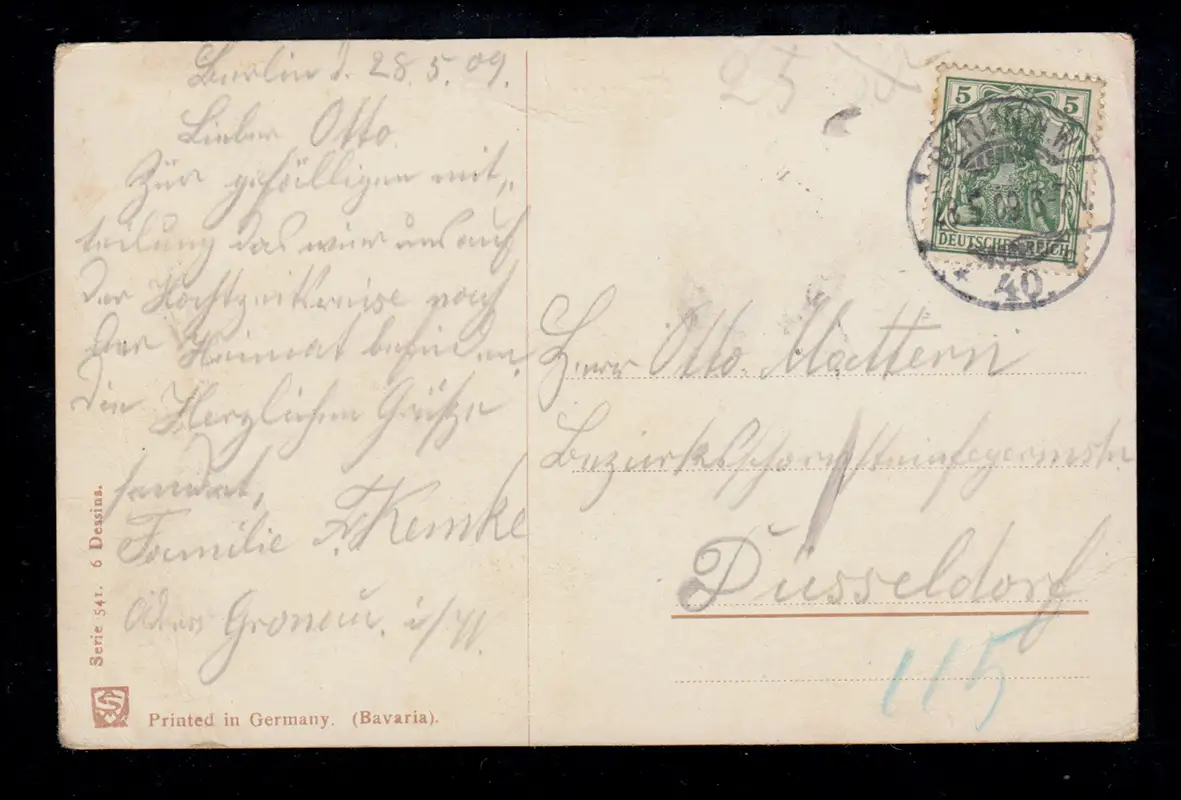 Berlin d. 28.5.09.
Lieber Otto.
Zur gefälligen mit-
teilung das wir uns auf
der Hochtzeitsreise nach
der Heimat befinden.
die Herzlichsten Grüße
sendet,
Familie Fr. Kemke
Gronau. i/W.
Serie 541. 6 Dessins.
Printed in Germany. (Bavaria).
25
5 5
DEUTSCHES REICH
BERLIN N.W.
28.5.09.6-7N.
* 40.
Herr Otto. Mattern
Bezirksschornsteinfegermstr
Düsseldorf
115